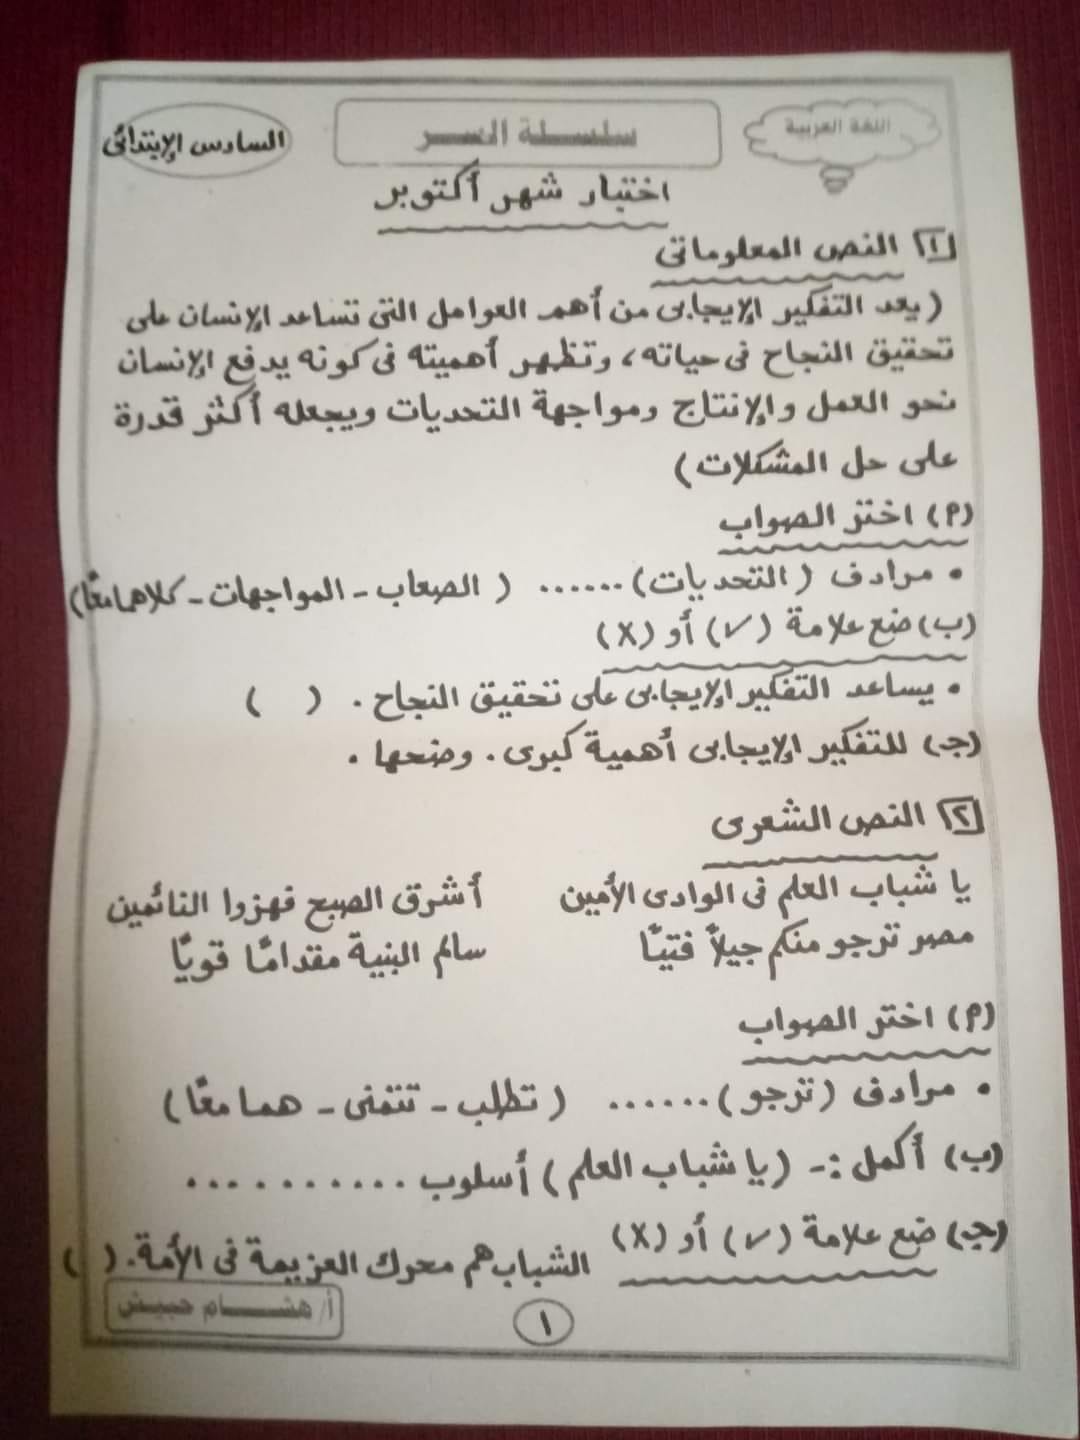 اللغة العربية
سلسلة السر
السادس الإبتدائى
اختبار شهر أكتوبر
١ النص المعلوماتى
( يعد التفكير الإيجابى من أهم العوامل التى تساعد الإنسان على
تحقيق النجاح فى حياته، وتظهر أهميته فى كونه يدفع الإنسان
نحو العمل والإنتاج ومواجهة التحديات ويجعله أكثر قدرة
على حل المشكلات )
(٩) اختر الصواب
• مرادف ( التحديات ) ...... ( الصعاب - المواجهات - كلاهما معًا )
(ب) ضع علامة (✓) أو (X)
• يساعد التفكير الإيجابى على تحقيق النجاح . ( )
(جـ) للتفكير الإيجابى أهمية كبرى . وضحها .
٢ النص الشعرى
يا شباب العلم فى الوادى الأمين أشرق الصبح فهزوا النائمين
مصر ترجو منكم جيلاً فتيًا سالم البنية مقدامًا قويًا
(٩) اختر الصواب
• مرادف ( ترجو ) ...... ( تطلب - تتمنى - هما معًا )
(ب) أكمل :- ( يا شباب العلم ) أسلوب ..........
(جـ) ضع علامة (✓) أو (X) الشباب هم محرك العزيمة فى الأمة. ( )
أ/ هشام حبيش
١